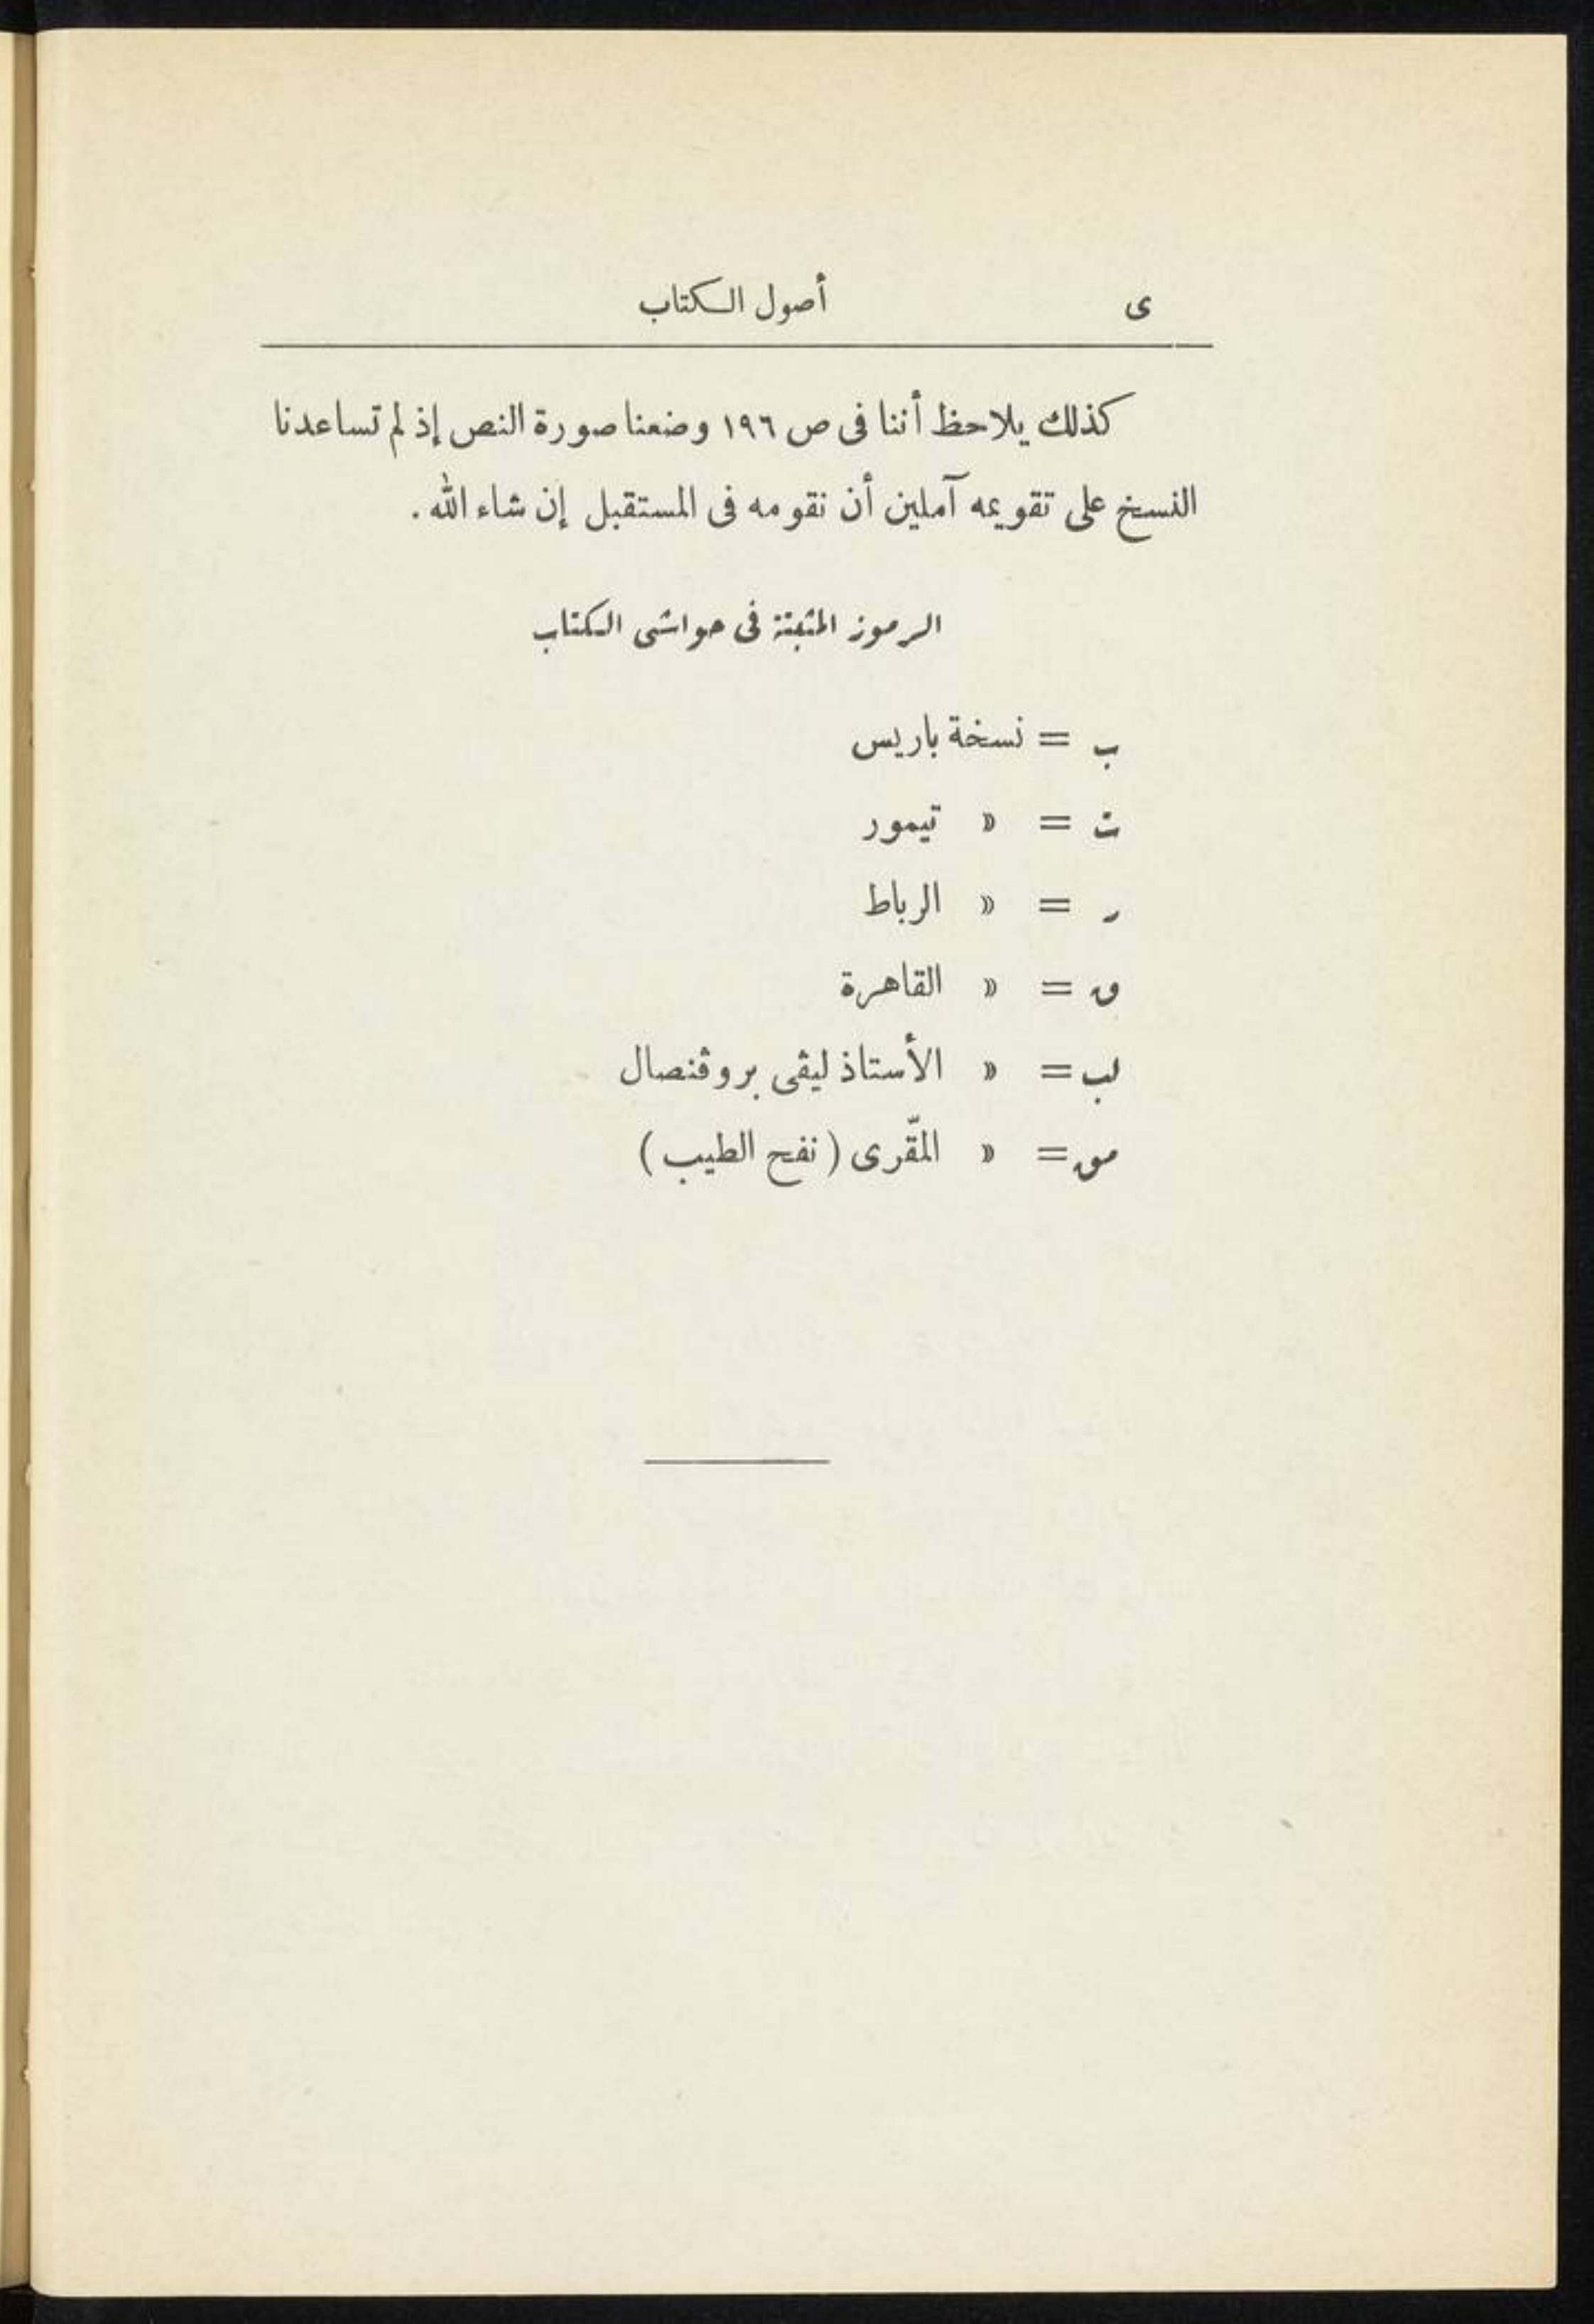 ى أصول الكتاب
كذلك يلاحظ أننا فى ص ١٩٦ وضعنا صورة النص إذ لم تساعدنا
النسخ على تقويمه آملين أن نقومه فى المستقبل إن شاء الله .
الرموز المثبتة فى حواشى الكتاب
ب = نسخة باريس
ت = » تيمور
ر = » الرباط
ق = » القاهرة
لب = » الأستاذ ليڤى بروڤنصال
مق = » المقّرى ( نفح الطيب )